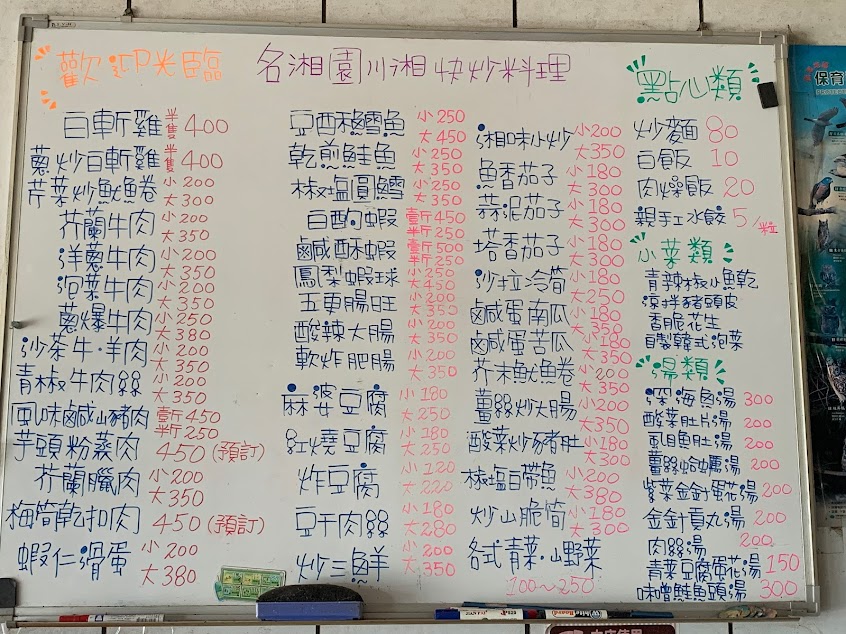 歡迎光臨 名湘園川湘快炒料理
白斬雞 半隻 400
蔥炒白斬雞 半隻 400
芹菜炒魷魚卷 小200 大300
芥蘭牛肉 小200 大350
洋蔥牛肉 小200 大350
泡菜牛肉 小200 大350
蔥爆牛肉 小250 大380
沙茶牛·羊肉 小200 大350
青椒牛肉絲 小200 大350
風味鹹山豬肉 壹斤450 半斤250
芋頭粉蒸肉 450(預訂)
芥蘭臘肉 小200 大350
梅筍乾扣肉 450(預訂)
蝦仁滑蛋 小200 大380
豆酥鱈魚 小250 大450
乾煎鮭魚 小250 大350
椒塩圓鱈 小250 大350
白灼蝦 壹斤450 半斤250
鹹酥蝦 壹斤500 半斤250
鳳梨蝦球 小250 大450
五更腸旺 小200 大350
酸辣大腸 小200 大350
軟炸肥腸 小200 大350
麻婆豆腐 小180 大250
紅燒豆腐 小180 大250
炸豆腐 小120 大220
豆干肉絲 小180 大280
炒三鮮 小200 大350
湘味小炒 小200 大350
魚香茄子 小180 大300
蒜泥茄子 小180 大300
塔香茄子 小180 大300
沙拉冷筍 小180 大250
鹹蛋南瓜 小180 大350
鹹蛋苦瓜 小180 大350
芥末魷魚卷 小200 大350
薑絲炒大腸 小200 大350
酸菜炒豬肚 小180 大300
椒塩白帶魚 小200 大380
炒山脆筍 小180 大300
各式青菜·山野菜
100~250
點心類
炒麵 80
白飯 10
肉燥飯 20
親手工水餃 5/粒
小菜類
青辣椒小魚乾
涼拌豬頭皮
香脆花生
自製韓式泡菜
湯類
深海魚湯 300
酸菜肚片湯 200
虱目魚肚湯 200
薑絲蛤蠣湯 200
紫菜金針蛋花湯 200
金針貢丸湯 200
肉絲湯 200
青菜豆腐蛋花湯 150
味噌鮭魚頭湯 300
保育